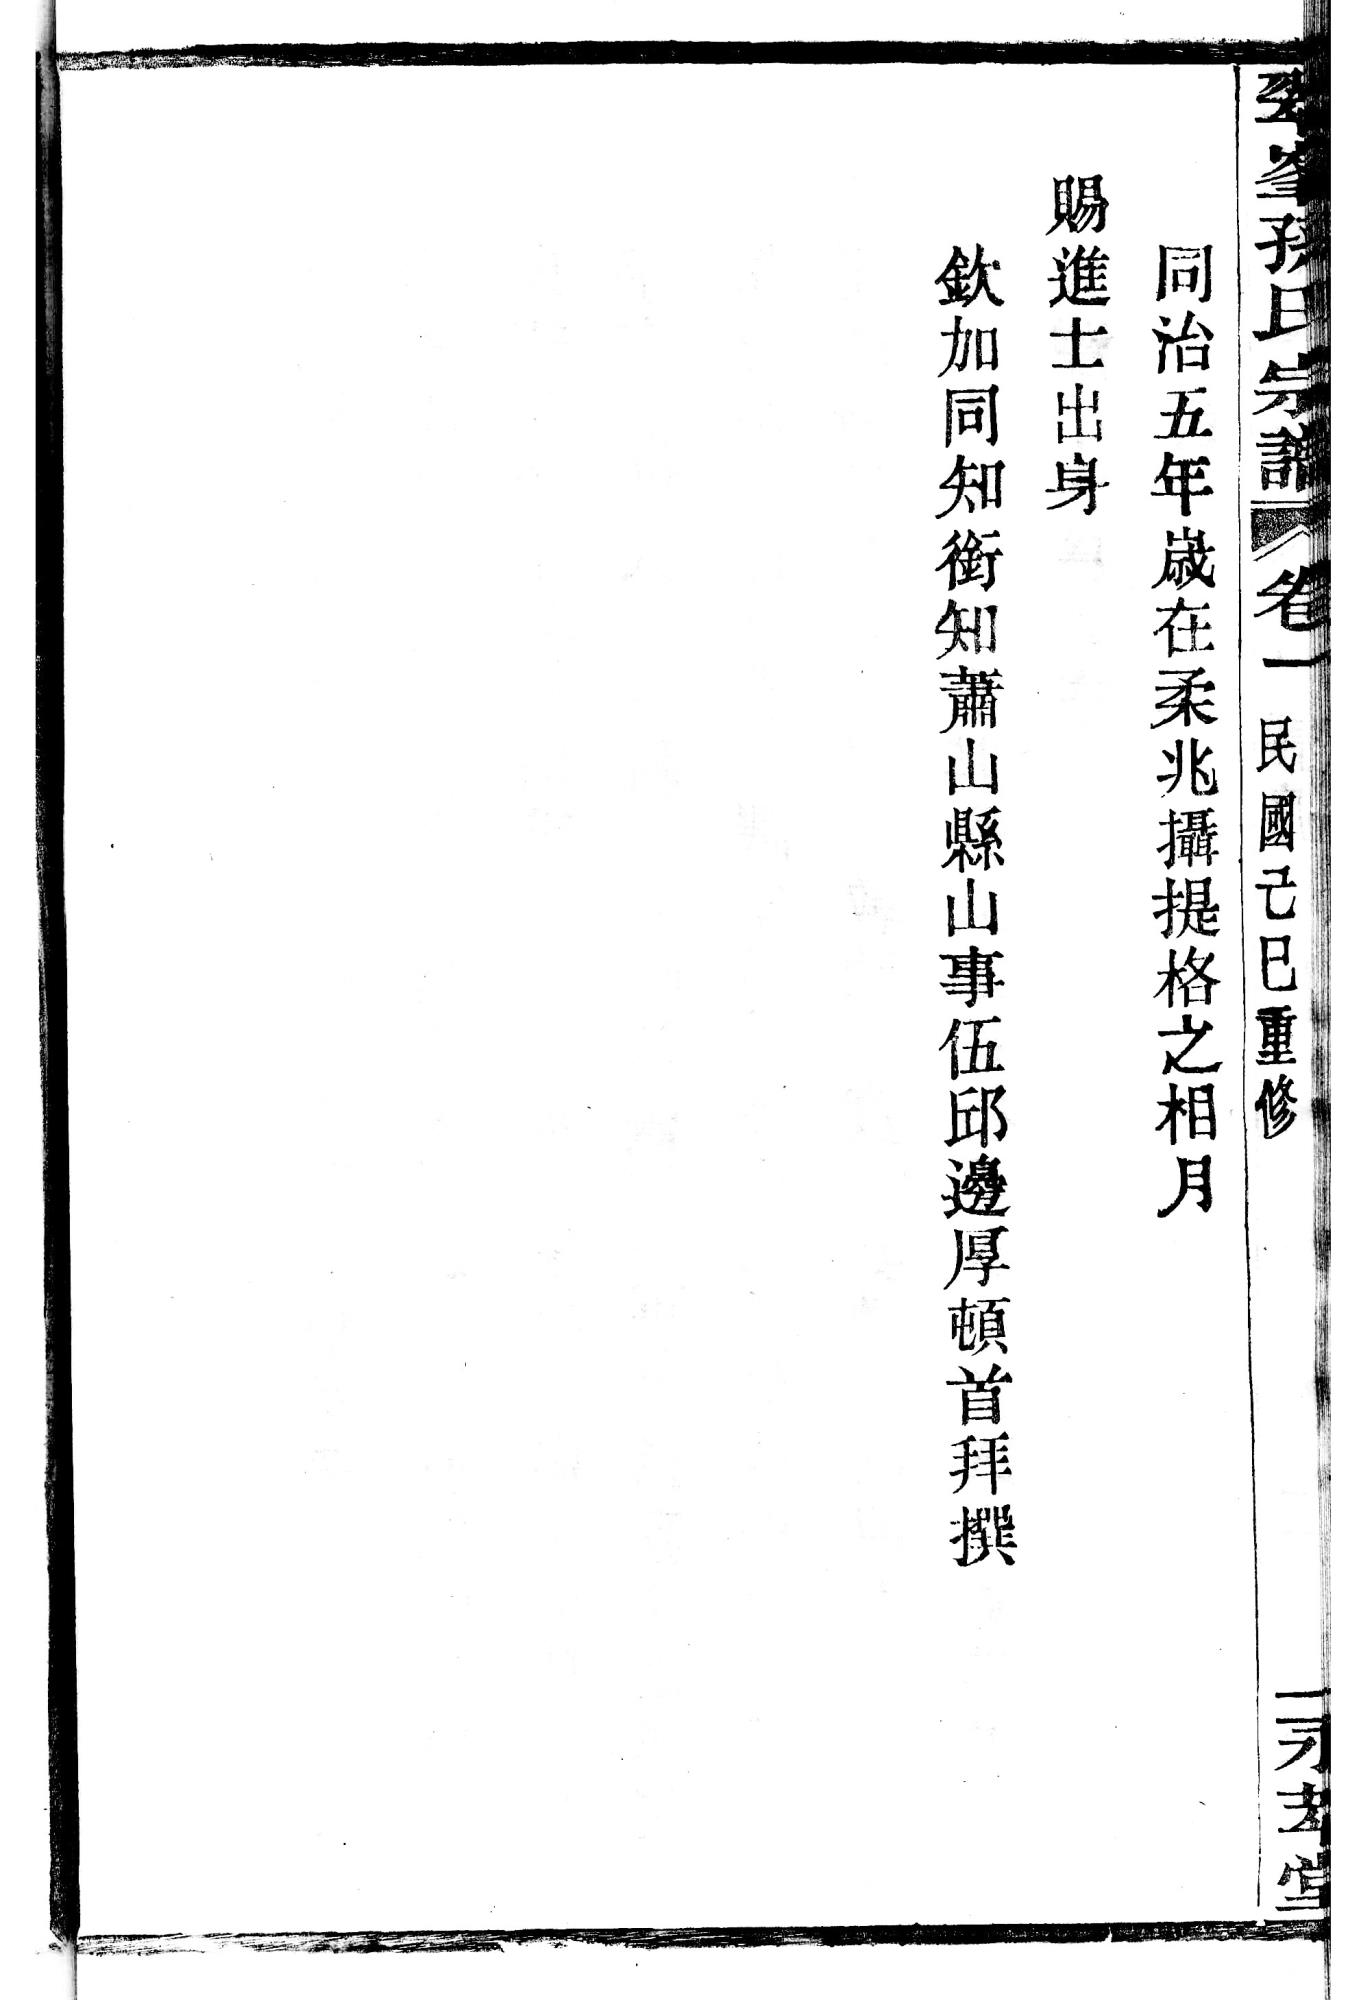 孫氏宗譜 卷一 民國己巳重修
同治五年歲在柔兆攝提格之相月
賜進士出身
欽加同知銜知蕭山縣山事伍邱邊厚頓首拜撰
堂